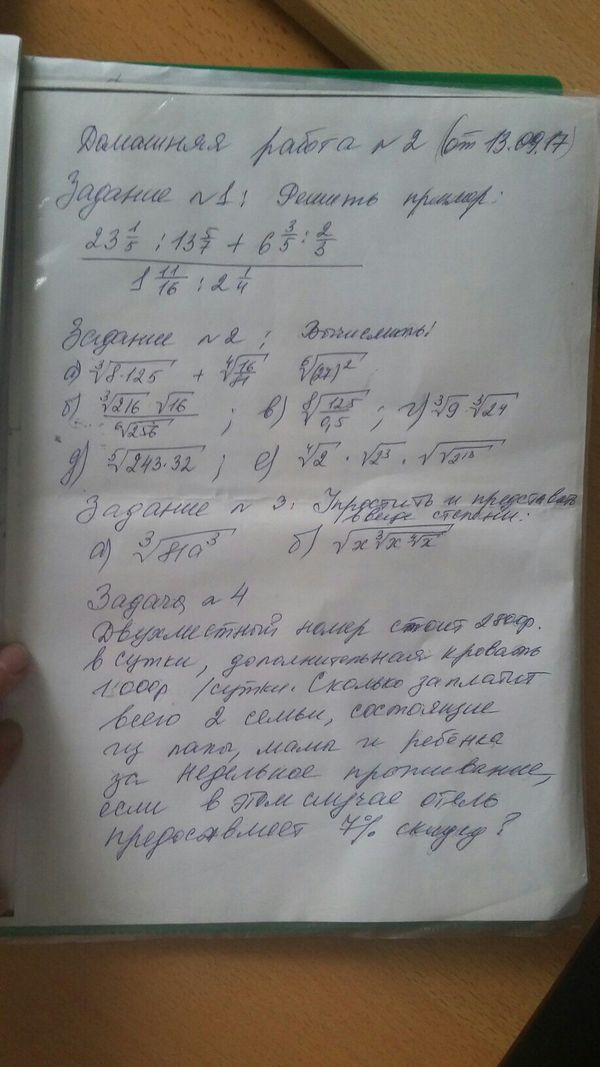 Домашняя работа №2 (от 13.09.17)
Задание №1: Решить пример:
23 1/5 : 13 5/7 + 6 3/5 : 2/3
1 11/16 : 2 1/4
Задание №2: Вычислить:
а) ∛(8·125) + ∜(16/81) ⁶√(27)²
б) ∛216 · √16 / ⁶√256 ; в) ⁸√(125/0,5) ; г) ∛9 · ∛24
д) ⁵√(243·32) ; е) ∜2 · √2³ · √√2¹³
Задание №3: Упростить и представить
в виде степени:
а) ∛(81a³) б) √(x∛(x∜x))
Задача №4
Двухместный номер стоит 2800р.
в сутки, дополнительная кровать
1000р /сутки. Сколько заплатят
всего 2 семьи, состоящие
из папы, мамы и ребёнка
за недельное проживание,
если в этом случае отель
предоставляет 7% скидку?